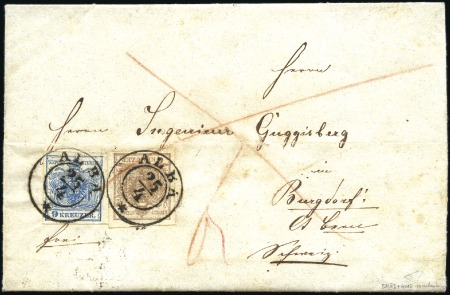 Herrn
Herrn Ingenieur Guggisberg
in
Burgdorf
Ct Bern
Schweiz
frei
ALBA
25
ALBA
25
9 KREUZER